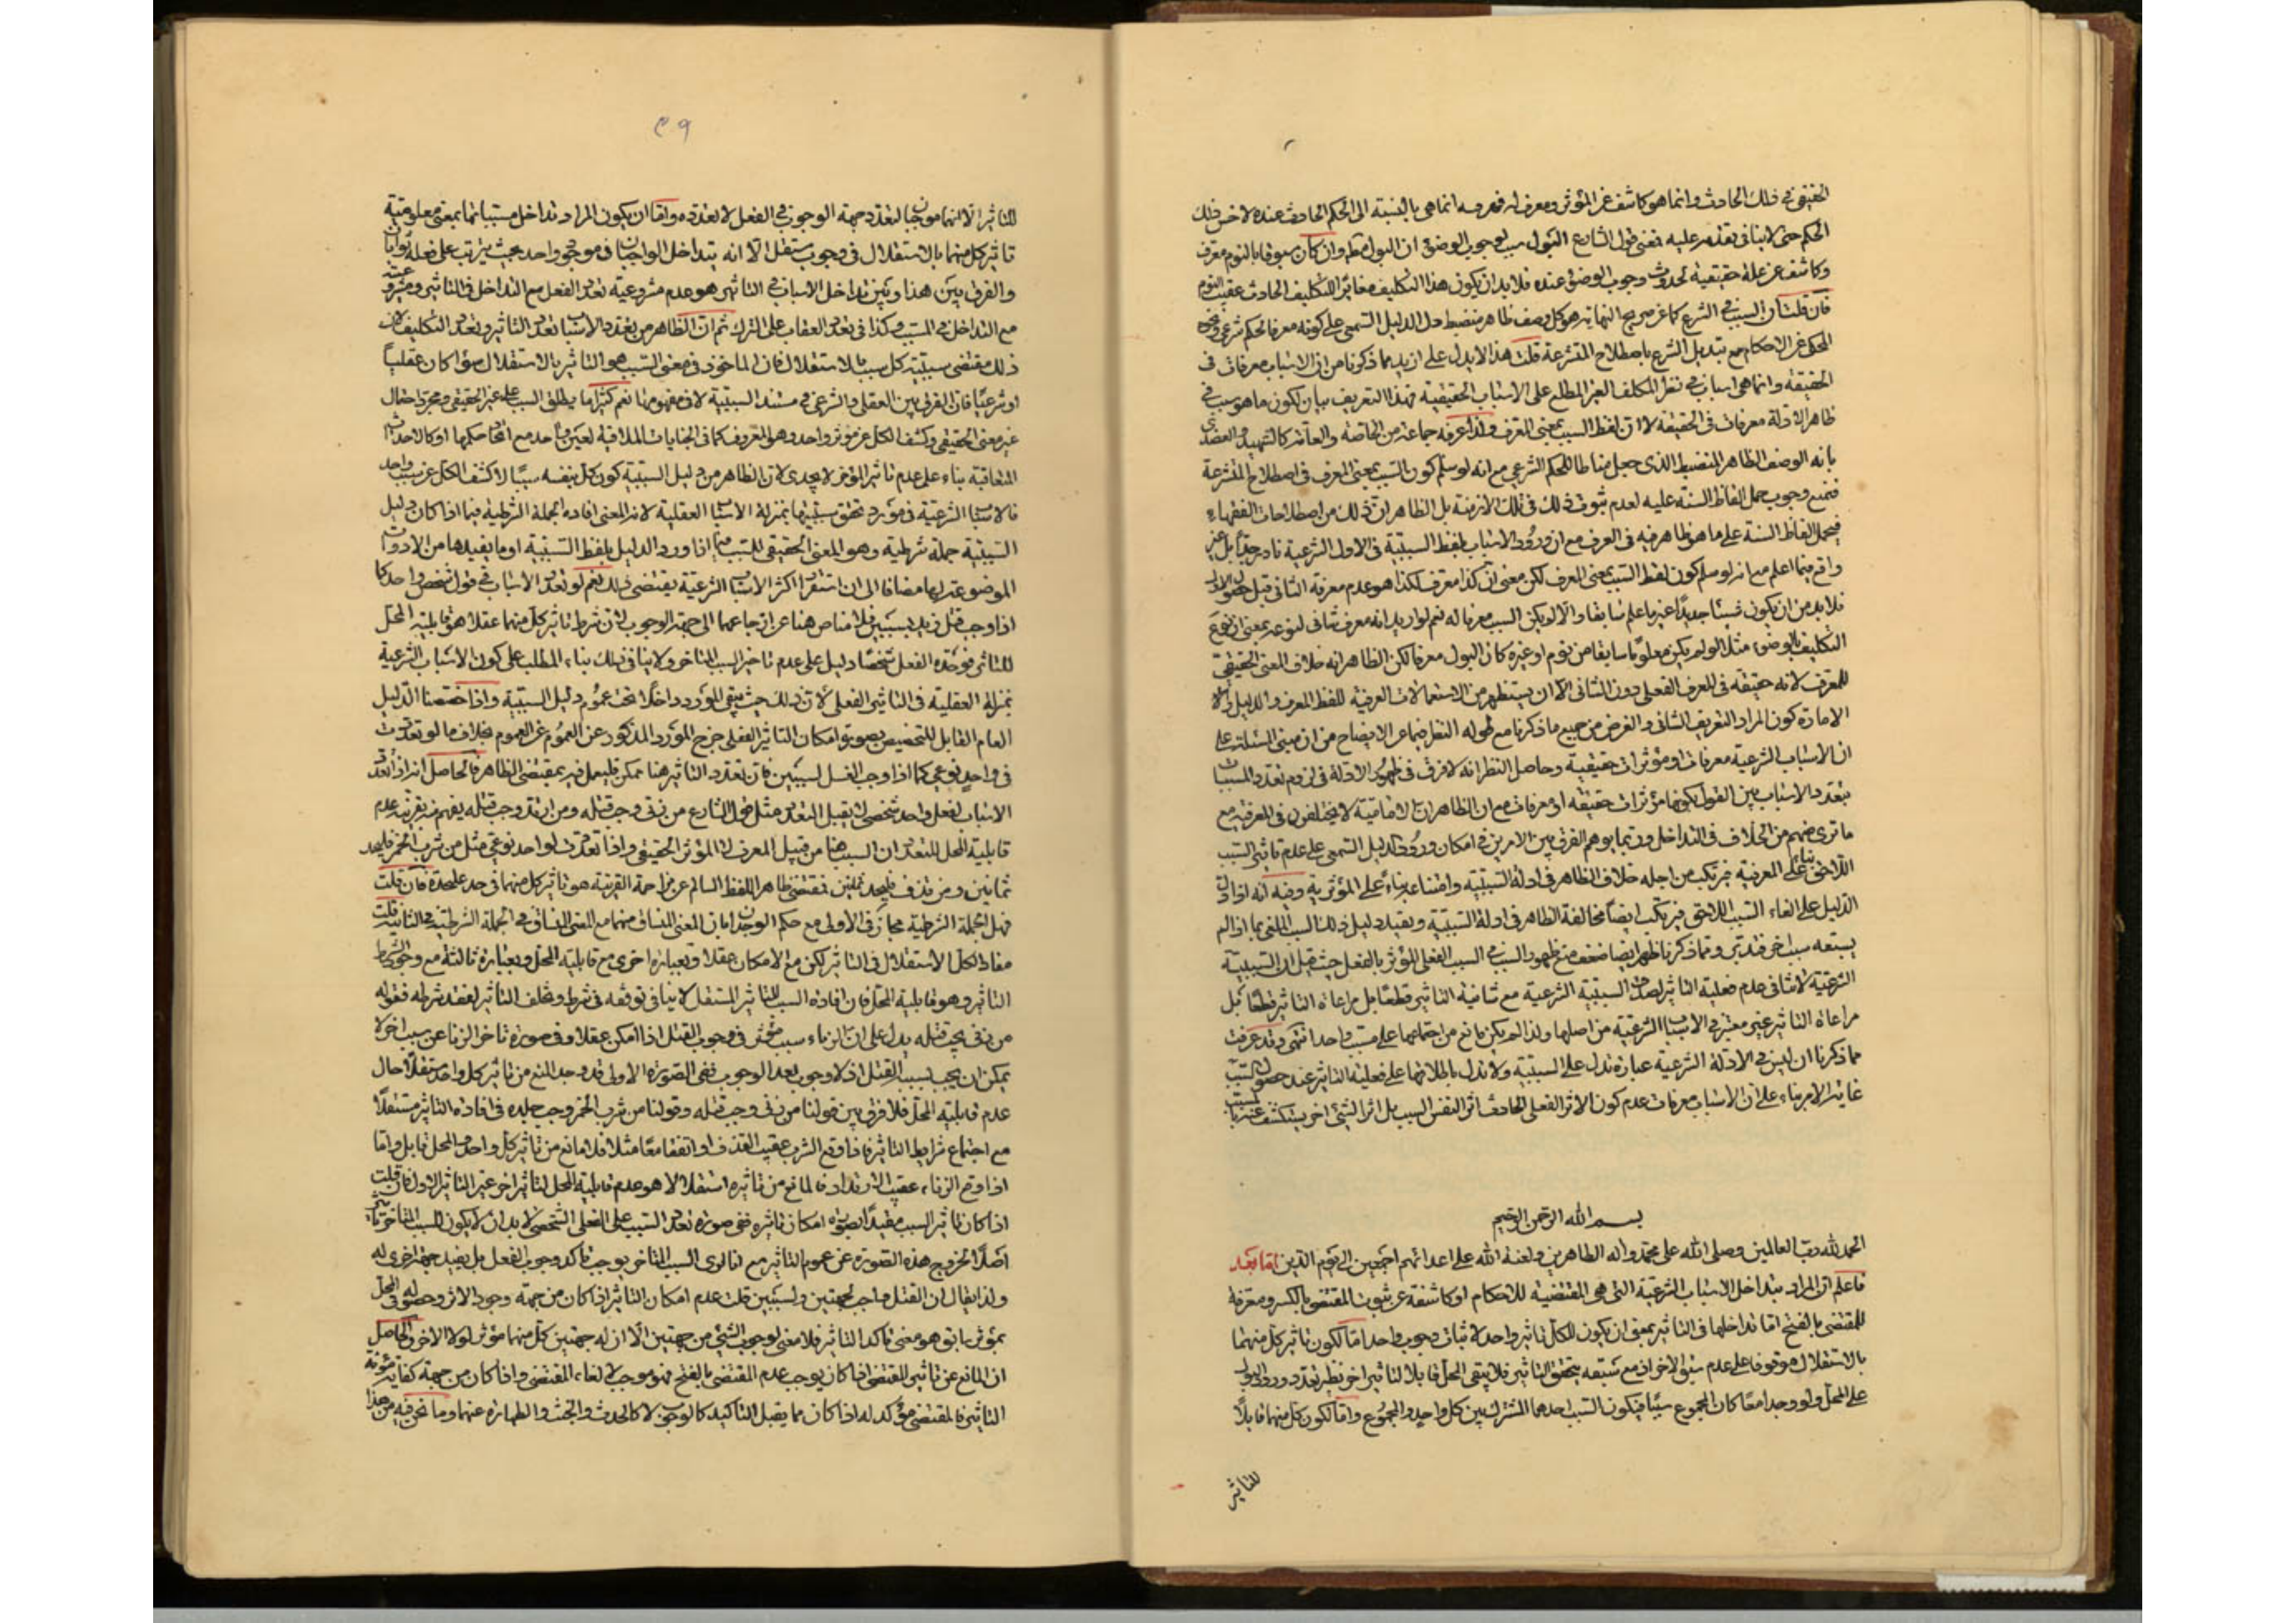 الحقيقي في ذلك الحادث وانما هو كاشف عن المؤثر ومعرف له فمعرفيته انما هي بالنسبة الى الحكم الحادث عنده لا خس ذلك
الحكم حتى لا ينافي تقدم عليه فمعنى قول الشارع البول سبب لوجوب الوضوء ان البول مطلقا وان كان مسبوقا بالنوم معرف
وكاشف عن علة حقيقية لحدوث وجوب الوضوء عنده فلابد ان يكون هذا التكليف مغايرا للتكليف الحادث عقيب النوم
فان قلت ان السبب في الشرع كما عن صريح النهاية هو كل وصف ظاهر منضبط دل الدليل السمعي على كونه معرفا لحكم شرعي
المحكي عن الاحكام مع تبديل الشرع باصطلاح المتشرعة قلت هذا لا يدل على ازيد مما ذكرنا من ان الاسباب معرفات في
الحقيقة وانما هي اسباب في نظر المكلف الغير المطلع على الاسباب الحقيقية فهذا التعريف بيان لكون ما هو سبب في
ظاهر الادلة معرفات في الحقيقة لا ان لفظ السبب بمعنى المعرف ولذا عرفه جماعة من الخاصة والعامة كالشهيد والعضدي
بانه الوصف الظاهر المنضبط الذي جعل مناطا للحكم الشرعي مع انه لو سلم كون السبب بمعنى المعرف في اصطلاح المتشرعة
فنمنع وجوب حمل الفاظ السنة عليه لعدم ثبوت ذلك في تلك الازمنة بل الظاهر ان ذلك من اصطلاحات الفقهاء
فيحمل الفاظ السنة على ما هو ظاهر فيه في العرف مع ان ورود الاسباب بلفظ السببية في الاول الشرعية نادر جدا بل غير
واقع فيما اعلم مع انه لو سلم كون لفظ السبب بمعنى المعرف لكن معنى ان كذا معرف لكذا هو عدم معرفة الثاني قبل حصول الاول
فلابد من ان يكون شيئا جديدا غير ما علم سابقا والا لم يكن السبب معرفا له نعم لو اريد انه معرف شأني لنوعه بمعنى ان نوع
التكليف بالوضوء مثلا لو لم يكن معلوما سابقا من نوم او غيره كان البول معرفا لكن الظاهر انه خلاف المعنى الحقيقي
للمعرف لانه حقيقة في المعرف الفعلي دون الشأني الا ان يستظهر من الاستعمالات العرفية للفظ المعرف والدليل
الامارة كون المراد التعريف الشأني والغرض من جميع ما ذكرنا مع طوله النظر فيما عن الايضاح من ان مبنى المسئلة على
ان الاسباب الشرعية معرفات او مؤثرات حقيقية وحاصل النظر انه لا فرق في ظهور الادلة في لزوم تعدد المسببات
بتعدد الاسباب بين القول بكونها مؤثرات حقيقة او معرفات مع ان الظاهر ان الامامية لا يختلفون في المعرفية مع
ما ترى منهم من الخلاف في التداخل وربما يوهم الفرق بين الامرين في امكان ورود الدليل السمعي على عدم تأثير السبب
اللاحق بناء على المعرفية فيرتكب من اجله خلاف الظاهر في ادلة السببية وامتناعه بناء على المؤثرية وفيه انه اذا دل
الدليل على الغاء السبب اللاحق فيرتكب ايضا مخالفة الظاهر في ادلة السببية ويقيد دليل ذلك السبب الملغى بما اذا لم
يسبقه سبب اخر فتدبر ومما ذكرنا ظهر ايضا ضعف منع ظهور السبب في السبب الفعلي المؤثر بالفعل حيث قيل ان السببية
الشرعية لا تنافي عدم فعلية التأثير لصدق السببية الشرعية مع شأنية التأثير قطعا بل مراعاة التأثير قطعا بل
مراعاة التأثير غير معتبر في الاسباب الشرعية من اصلها ولذا لم يكن مانع من اجتماعها على مسبب واحد انتهى وقد عرفت
مما ذكرنا ان ليس في الادلة الشرعية عبارة تدل على السببية ولا تدل باطلاقها على فعلية التأثير عند حصول السبب
غاية الامر بناء على ان الاسباب معرفات عدم كون الاثر الفعلي الحادث اثرا لنفس السبب بل اثر الشيء اخر يستكشف عنه
بسم الله الرحمن الرحيم
الحمد لله رب العالمين وصلى الله على محمد واله الطاهرين ولعنة الله على اعدائهم اجمعين الى يوم الدين اما بعد
فاعلم ان المراد بتداخل الاسباب الشرعية التي هي المقتضية للاحكام او كاشفة عن ثبوت المقتضي بالكسر ومعرفة
للمقتضى بالفتح اما تداخلها في التأثير بمعنى ان يكون للكل تأثير واحد لاثبات وجوب واحد اما لكون تأثير كل منهما
بالاستقلال موقوفا على عدم سبق الاخر اذ مع سبقه يتحقق التأثير فلا يبقى المحل قابلا لتأثير اخر نظير تعدد ورود البول
على المحل ولو وجدا معا كان المجموع سببا فيكون السبب احدهما المشترك بين كل واحد والمجموع واما لكون كل منهما قابلا
للتأثير
٩٦
للتأثير الا انهما موجبان لتعدد جهة الوجوب في الفعل لا لتعدده واما ان يكون المراد تداخل مسبباتها بمعنى معلومية
تأثير كل منهما بالاستقلال في وجوب مستقل الا انه يتداخل الواجبان في موجود واحد بحيث يترتب على فعله ثوابان
والفرق بين هذا وبين تداخل الاسباب في التأثير هو عدم مشروعية تعدد الفعل مع التداخل في التأثير ومشروعيته
مع التداخل في المسبب وكذا في تعدد العقاب على الترك ثم ان الظاهر من تعدد الاسباب تعدد التأثير وتعدد التكليف لان
ذلك مقتضى سببية كل سبب بالاستقلال فان الماخوذ في معنى السبب هو التأثير بالاستقلال سواء كان عقليا
او شرعيا فان الفرق بين العقلي والشرعي في مستند السببية لا في مفهومها نعم كثيرا ما يطلق السبب على غير الحقيقي ومجرد احتمال
غير معنى الحقيقي وكشف الكل عن مؤثر واحد وهو المعروف كما في الجنابات الملاقية لعين واحد مع اتحاد حكمها او كالاحداث
المتعاقبة بناء على عدم تأثير المؤخر لا يجدي لان الظاهر من دليل السببية كون كل بنفسه سببا لا كشف الكل عن سبب واحد
فالاسباب الشرعية في مورد تحقق سببيتها بمنزلة الاسباب العقلية لانه المعنى افاده الجملة الشرطية فيما اذا كان دليل
السببية جملة شرطية وهو المعنى الحقيقي للسبب فيما اذا ورد الدليل بلفظ السببية او ما يفيدها من الادوات
الموضوعة لها مضافا الى ان استقراء اكثر الاسباب الشرعية يقتضي ذلك نعم لو تعدد الاسباب في قول شخص واحد كما
اذا وجب قتل زيد بسببين فلا مناص هنا عن ارجاعهما الى جهة الوجوب لان شرط تأثير كل منهما عقلا هو قابلية المحل
للتأثير فوحدة الفعل شخصا دليل على عدم تاخير السبب المتاخر ولا ينافي ذلك بناء المطلب على كون الاسباب الشرعية
بمنزلة العقلية في التأثير الفعلي لان ذلك حيث يبقى المورد داخلا تحت عموم دليل السببية واذا خصصنا الدليل
العام القابل للتخصيص بصورة امكان التأثير الفعلي خرج المورد المذكور عن العموم عن العموم بخلاف ما لو تعددت
في واحد نوعي كما اذا وجب الغسل لسببين فان تعدد التأثير هنا ممكن فليعمل فيه بمقتضى الظاهر فالحاصل انه اذا تعدد
الاسباب لفعل واحد شخصي لا يقبل التعدد مثل قول الشارع من زنى وجب قتله ومن ارتد وجب قتله يفهم منه بقرينة عدم
قابلية المحل للتعدد ان السبب هنا من قبيل المعرف لا المؤثر الحقيقي واذا تعددت لواحد نوعي مثل من شرب الخمر فليجلد
ثمانين ومن قذف فليجلد ثمانين فمقتضى ظاهر اللفظ السالم عن مزاحمة القرينة هو تأثير كل منهما في حد على حدة فان قلت
فهل الجملة الشرطية مجاز في الاولى مع حكم الوجدان بان المعنى المنساق منهما مع المعنى المنساق في الجملة الشرطية في الثانية قلت
مفاد الكل الاستقلال في التأثير لكن مع الامكان عقلا وبعبارة اخرى مع قابلية المحل وبعبارة ثالثة مع وجود شرط
التأثير وهو قابلية المحل فان افادة السبب للتأثير المستقل لا ينافي توقفه في شرط وتخلف التأثير لفقد شرطه فقوله
من زنى يجب قتله يدل على ان الزناء سبب مؤثر في وجوب القتل اذا امكن عقلا وفي صورة تاخر الزنا عن سبب اخر لا
يمكن ان يجب بسببه القتل اذ لا وجوب بعد الوجوب ففي الصورة الاولى قد وجد المنع من تأثير كل واحد مستقلا حال
عدم قابلية المحل فلا فرق بين قولنا من زنى وجب قتله وقولنا من شرب الخمر وجب جلده في افادة التأثير مستقلا
مع اجتماع شرايط التأثير فاذا وقع الشرب عقيب القذف او اتفقا معا مثلا فلا مانع من تأثير كل واحد والمحل قابل واما
اذا وقع الزناء عقيب الارتداد فالمانع من تأثيره استقلالا هو عدم قابلية المحل لتأثير اخر غير التأثير الاول فان قلت
اذا كان تأثير السبب مقيدا بصورة امكان تأثيره ففي صورة تعدد السبب على الفعل الشخصي لابد ان لا يكون للسبب المتاخر تأثير
اصلا لخروج هذه الصورة عن عموم التأثير مع انا نرى السبب المتاخر يوجب تأكد وجوب الفعل بل يفيد جهة اخرى له
ولذا يقال ان القتل واجب لجهتين ولسببين قلت عدم امكان التأثير اذا كان من جهة وجود الاثر وحصوله في المحل
بمؤثر سابق هو معنى تأكد التأثير فلا معنى لوجوب الشيء من جهتين الا ان له جهتين كل منهما مؤثر لولا الاخر والحاصل
ان المانع عن تأثير المقتضي اذا كان يوجب عدم المقتضى بالفتح فهو موجب لالغاء المقتضي واذا كان من جهة كفاية مؤنة
التأثير فالمقتضي مؤكد له اذا كان مما يقبل التاكيد كالوجوب لا كالحدث والخبث والطهارة عنهما وما نحن فيه من هذا